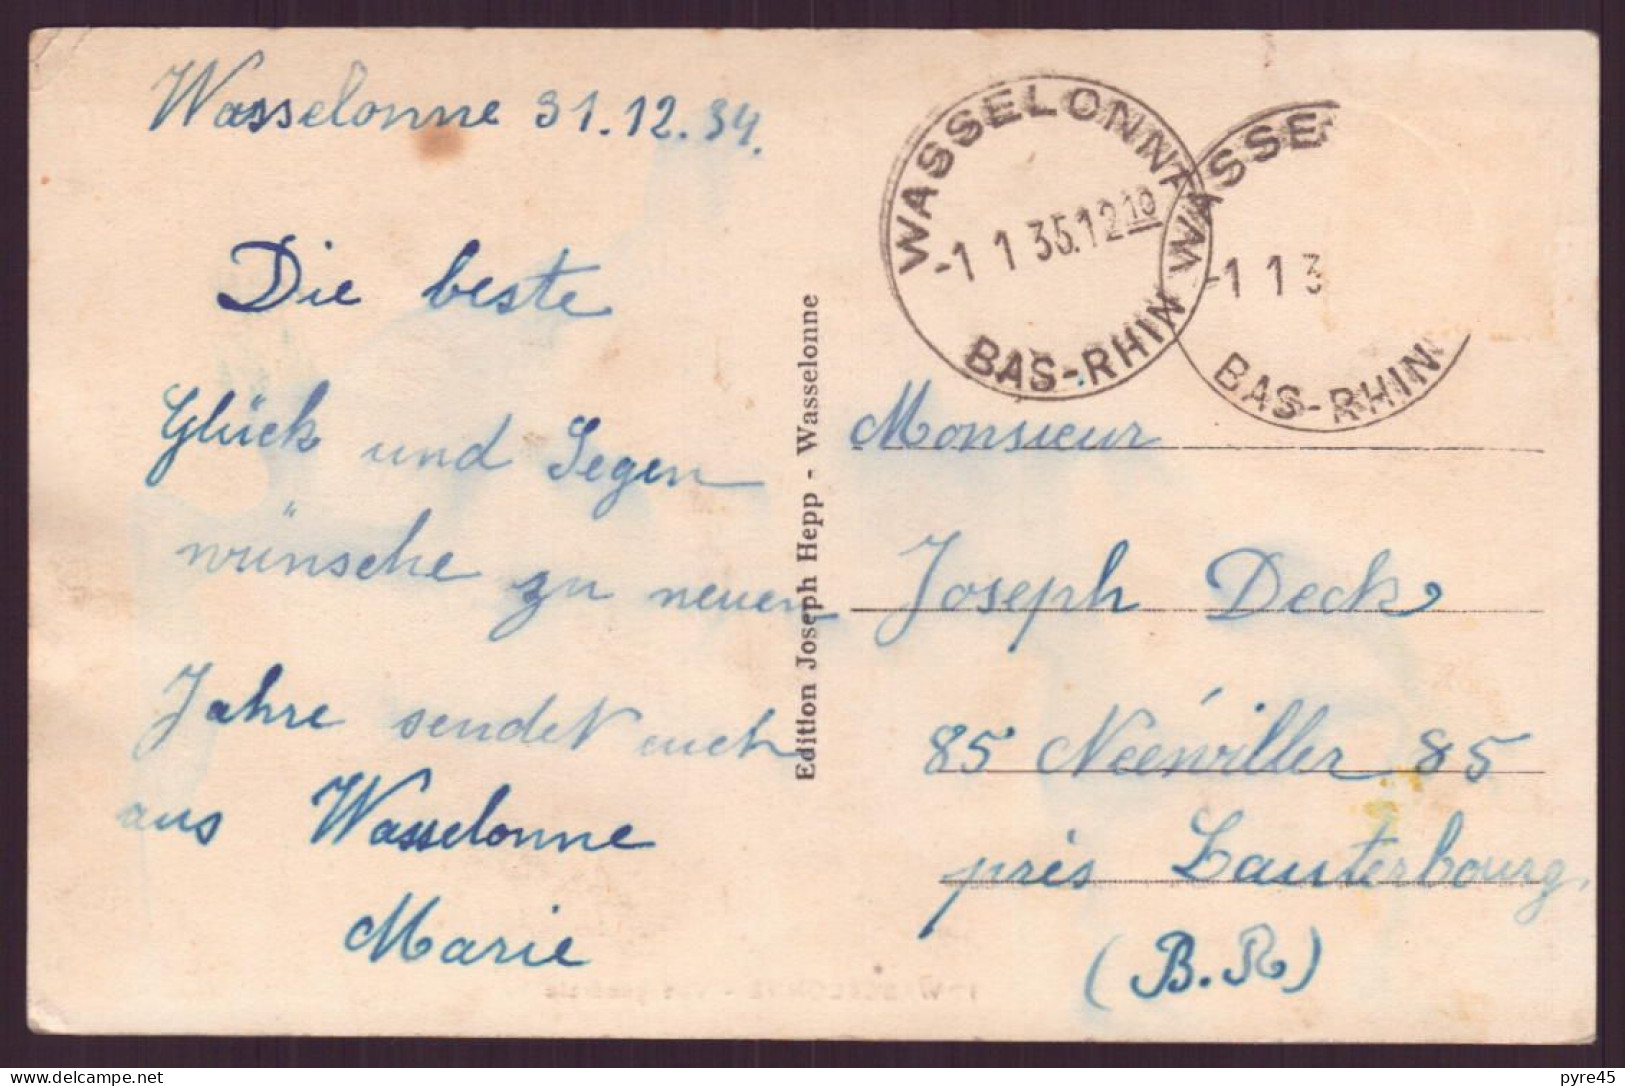 Wasselonne 31.12.34.
Die beste
Glück und Segen
wünsche zu neuen
Jahre sendet euch
aus Wasselonne
Marie
Edition Joseph Hepp - Wasselonne
WASSELONNE
-1 1 35.12 10
BAS-RHIN
WASSE
-1 1 3
BAS-RHIN
Monsieur
Joseph Deck
85 Néewiller 85
près Lauterbourg.
(B.R)
pyre45